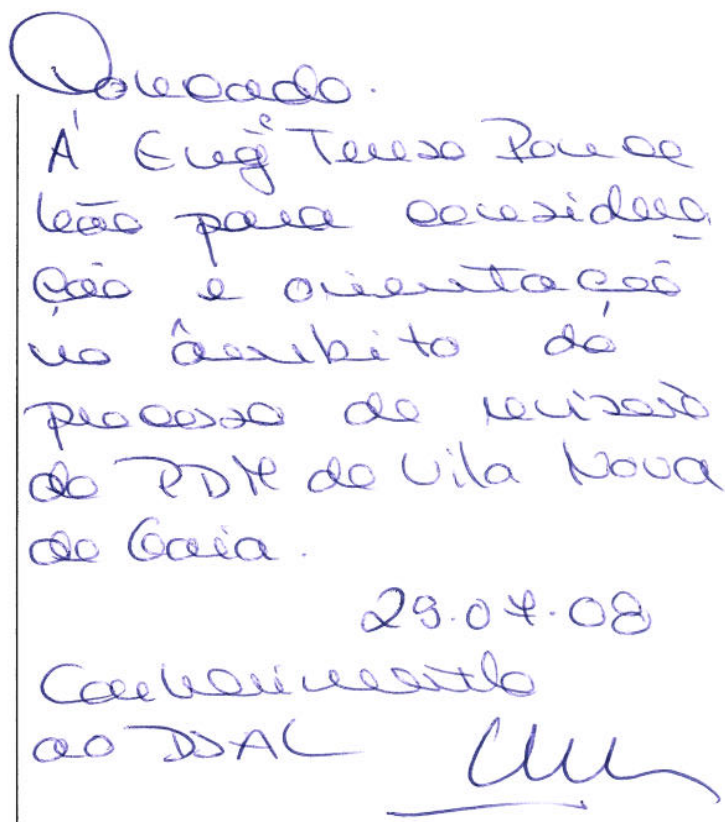 Tomado.
À Engª Teresa Ponce
Leão para considera
ção e orientação
no âmbito do
processo de revisão
do PDM de Vila Nova
de Gaia.
29.07.08
Conhecimento
ao DSAL